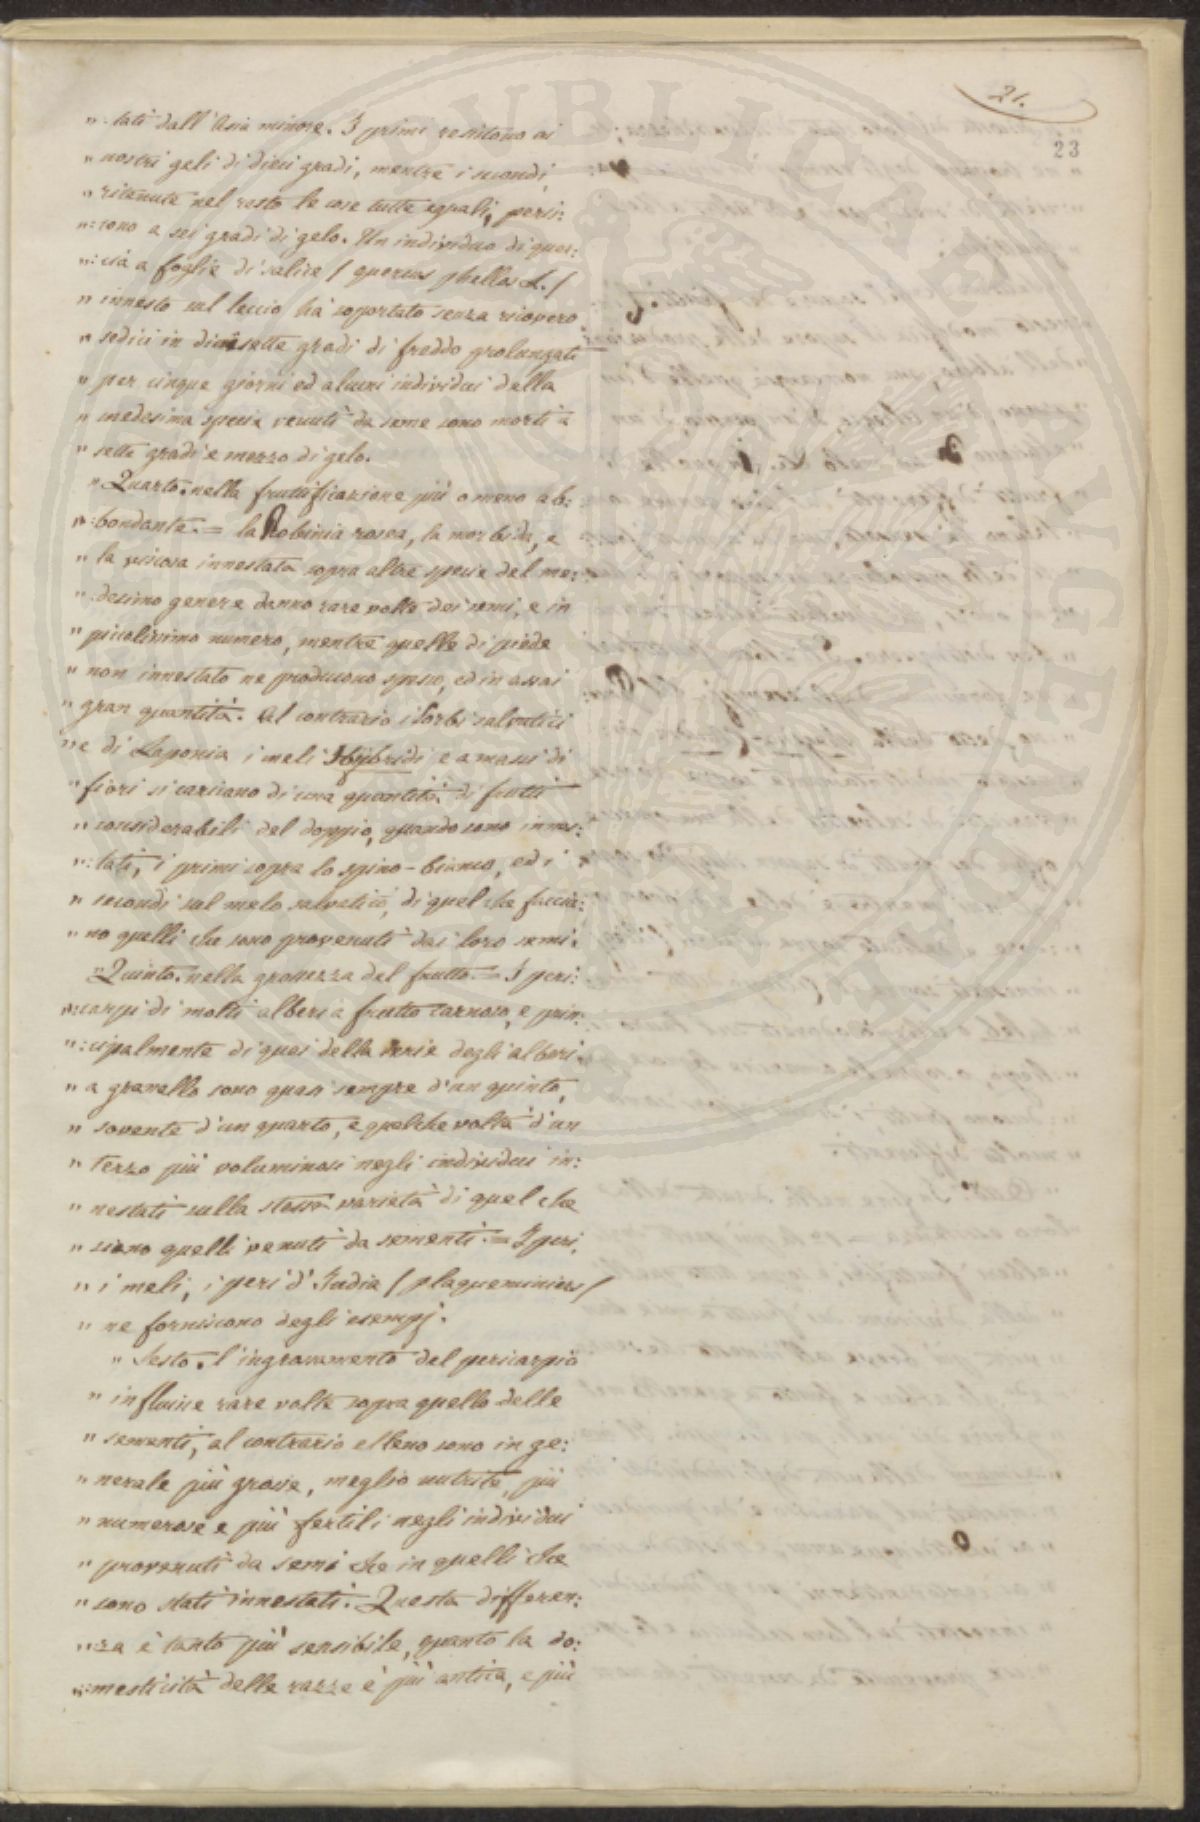 21.
23
":tati dall'Asia minore. I primi resistono ai
" nostri geli di dieci gradi, mentre i secondi,
" ritenute nel resto le cose tutte eguali, peris:
":cono a sei gradi di gelo. Un individuo di quer:
":cia a foglie di salice / quercus phellos L. /
" innesto sul leccio ha soportato senza ricovero
" sedici in diecisette gradi di freddo prolungati
" per cinque giorni ed alcuni individui della
" medesima specie venuti da seme sono morti a
" sette gradi e mezzo di gelo.
" Quarto. nella fruttificazione più o meno ab:
":bondante. = la Robinia rosea, la morbida, e
" la viscosa innestata sopra altre specie del me:
":desimo genere danno rare volte dei semi, e in
" piccolissimo numero, mentre quelle di piede
" non innestato ne producono spesso, ed in assai
" gran quantità. Al contrario i sorbi salvatici
" e di Laponia i meli Hybridi e a massi di
" fiori si caricano di una quantità di frutti
" considerabili del doppio, quando sono innes:
":tati, i primi sopra lo spino-bianco, ed i
" secondi sul melo salvatico, di quel che faccia:
" no quelli che sono provenuti dai loro semi.
" Quinto. nella grossezza del frutto = I peri:
":carpi di molti alberi a frutto carnoso, e prin:
":cipalmente di quei della serie degli alberi
" a granello sono quasi sempre d'un quinto,
" sovente d'un quarto, e qualche volta d'un
" terzo più voluminosi negli individui in:
" nestati sulla stessa varietà di quel che
" siano quelli venuti da sementi. = I peri,
" i meli, i peri d'India / plaqueminiers /
" ne forniscono degli esempj.
" Sesto. l'ingrossamento del pericarpio
" influisce rare volte sopra quello delle
" sementi, al contrario elleno sono in ge:
" nerale più grosse, meglio nutrite, più
" numerose e più fertili negli individui
" provenuti da semi che in quelli che
" sono stati innestati. Questa differen:
":za è tanto più sensibile, quanto la do:
":mesticità delle razze è più antica, e più